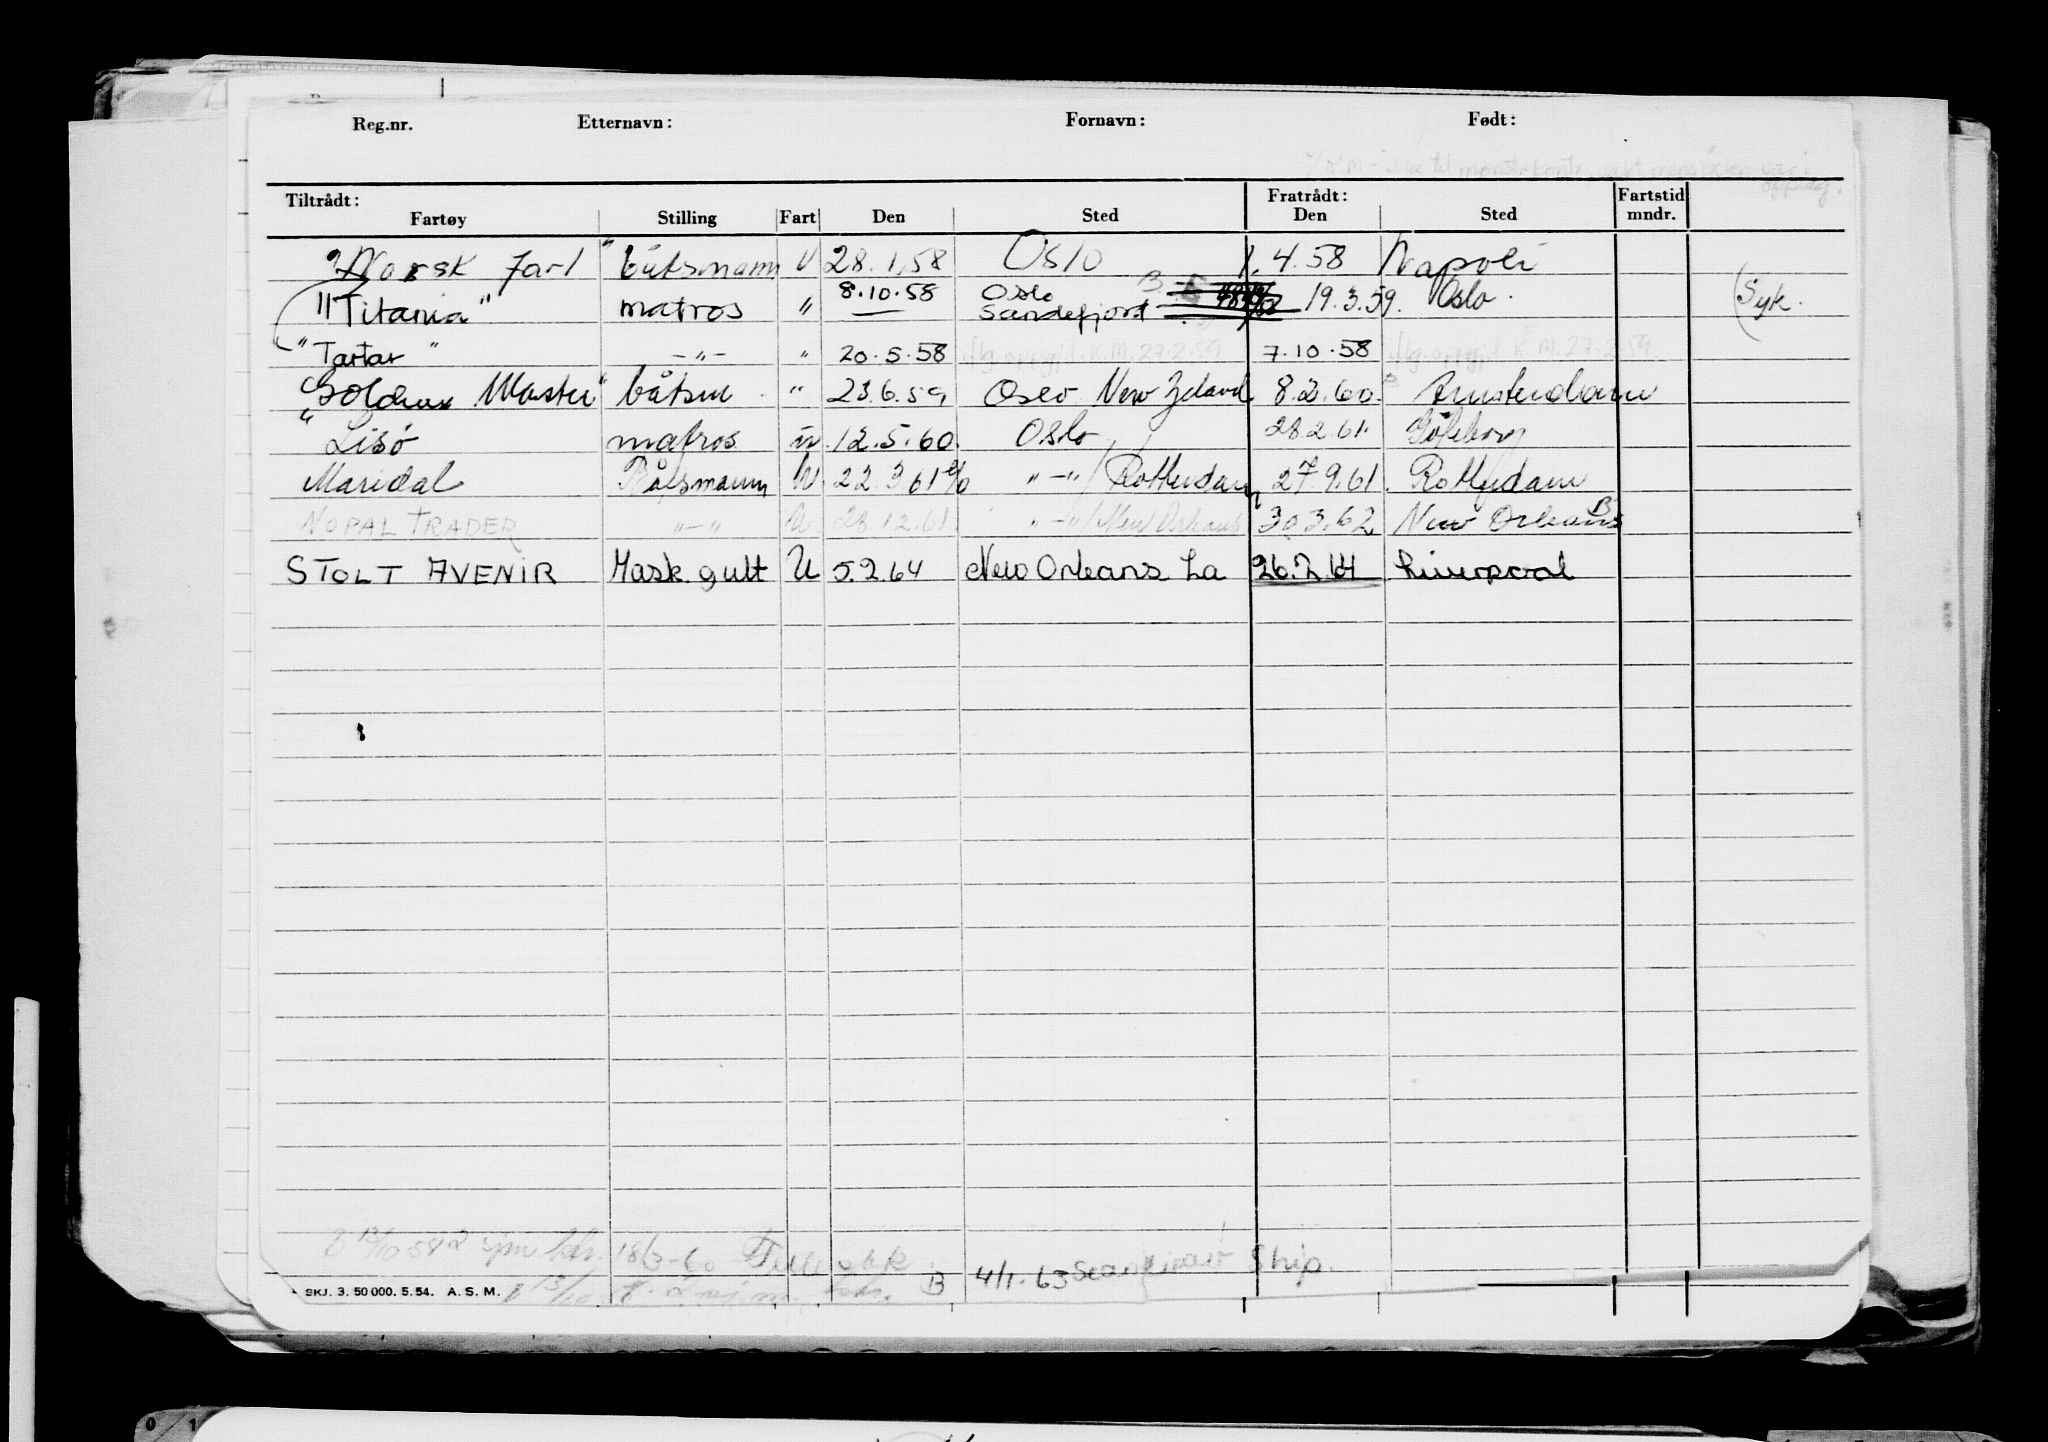 Reg.nr. Etternavn: Fornavn: Født:
Tiltrådt: Fratrådt: Fartstid
Fartøy Stilling Fart Den Sted Den Sted mndr.
"Norsk Jarl" båtsmann U 28.1.58 Oslo 1.4.58 Napoli
"Titania" matros " 8.10.58 Oslo Sandefjord 19.3.59. Oslo. (Syk.
"Tartar" -"- " 20.5.58 iflg. oppgift K.M. 27.2.59 7.10.58 iflg. oppgift K.M. 27.2.59.
"Golden Master" båtsm. " 23.6.59 Oslo New Zeland 8.2.60. Amsterdam
"Lisö matros 12.5.60. Oslo 28.2.61. Göteborg
Maridal Båtsmann U 22.3 61 "-"/Rotterdam 27.9.61. Rotterdam
NOPAL TRADER "-" U 28.12.61. "-"/New Orleans 30.3.62 New Orleans B
STOLT AVENIR Mask. gutt U 5.2.64 New Orleans La 26.2.64 Liverpool
18/3-60
SKJ. 3. 50 000. 5. 54. A. S. M. B 4/1.63 Ship.